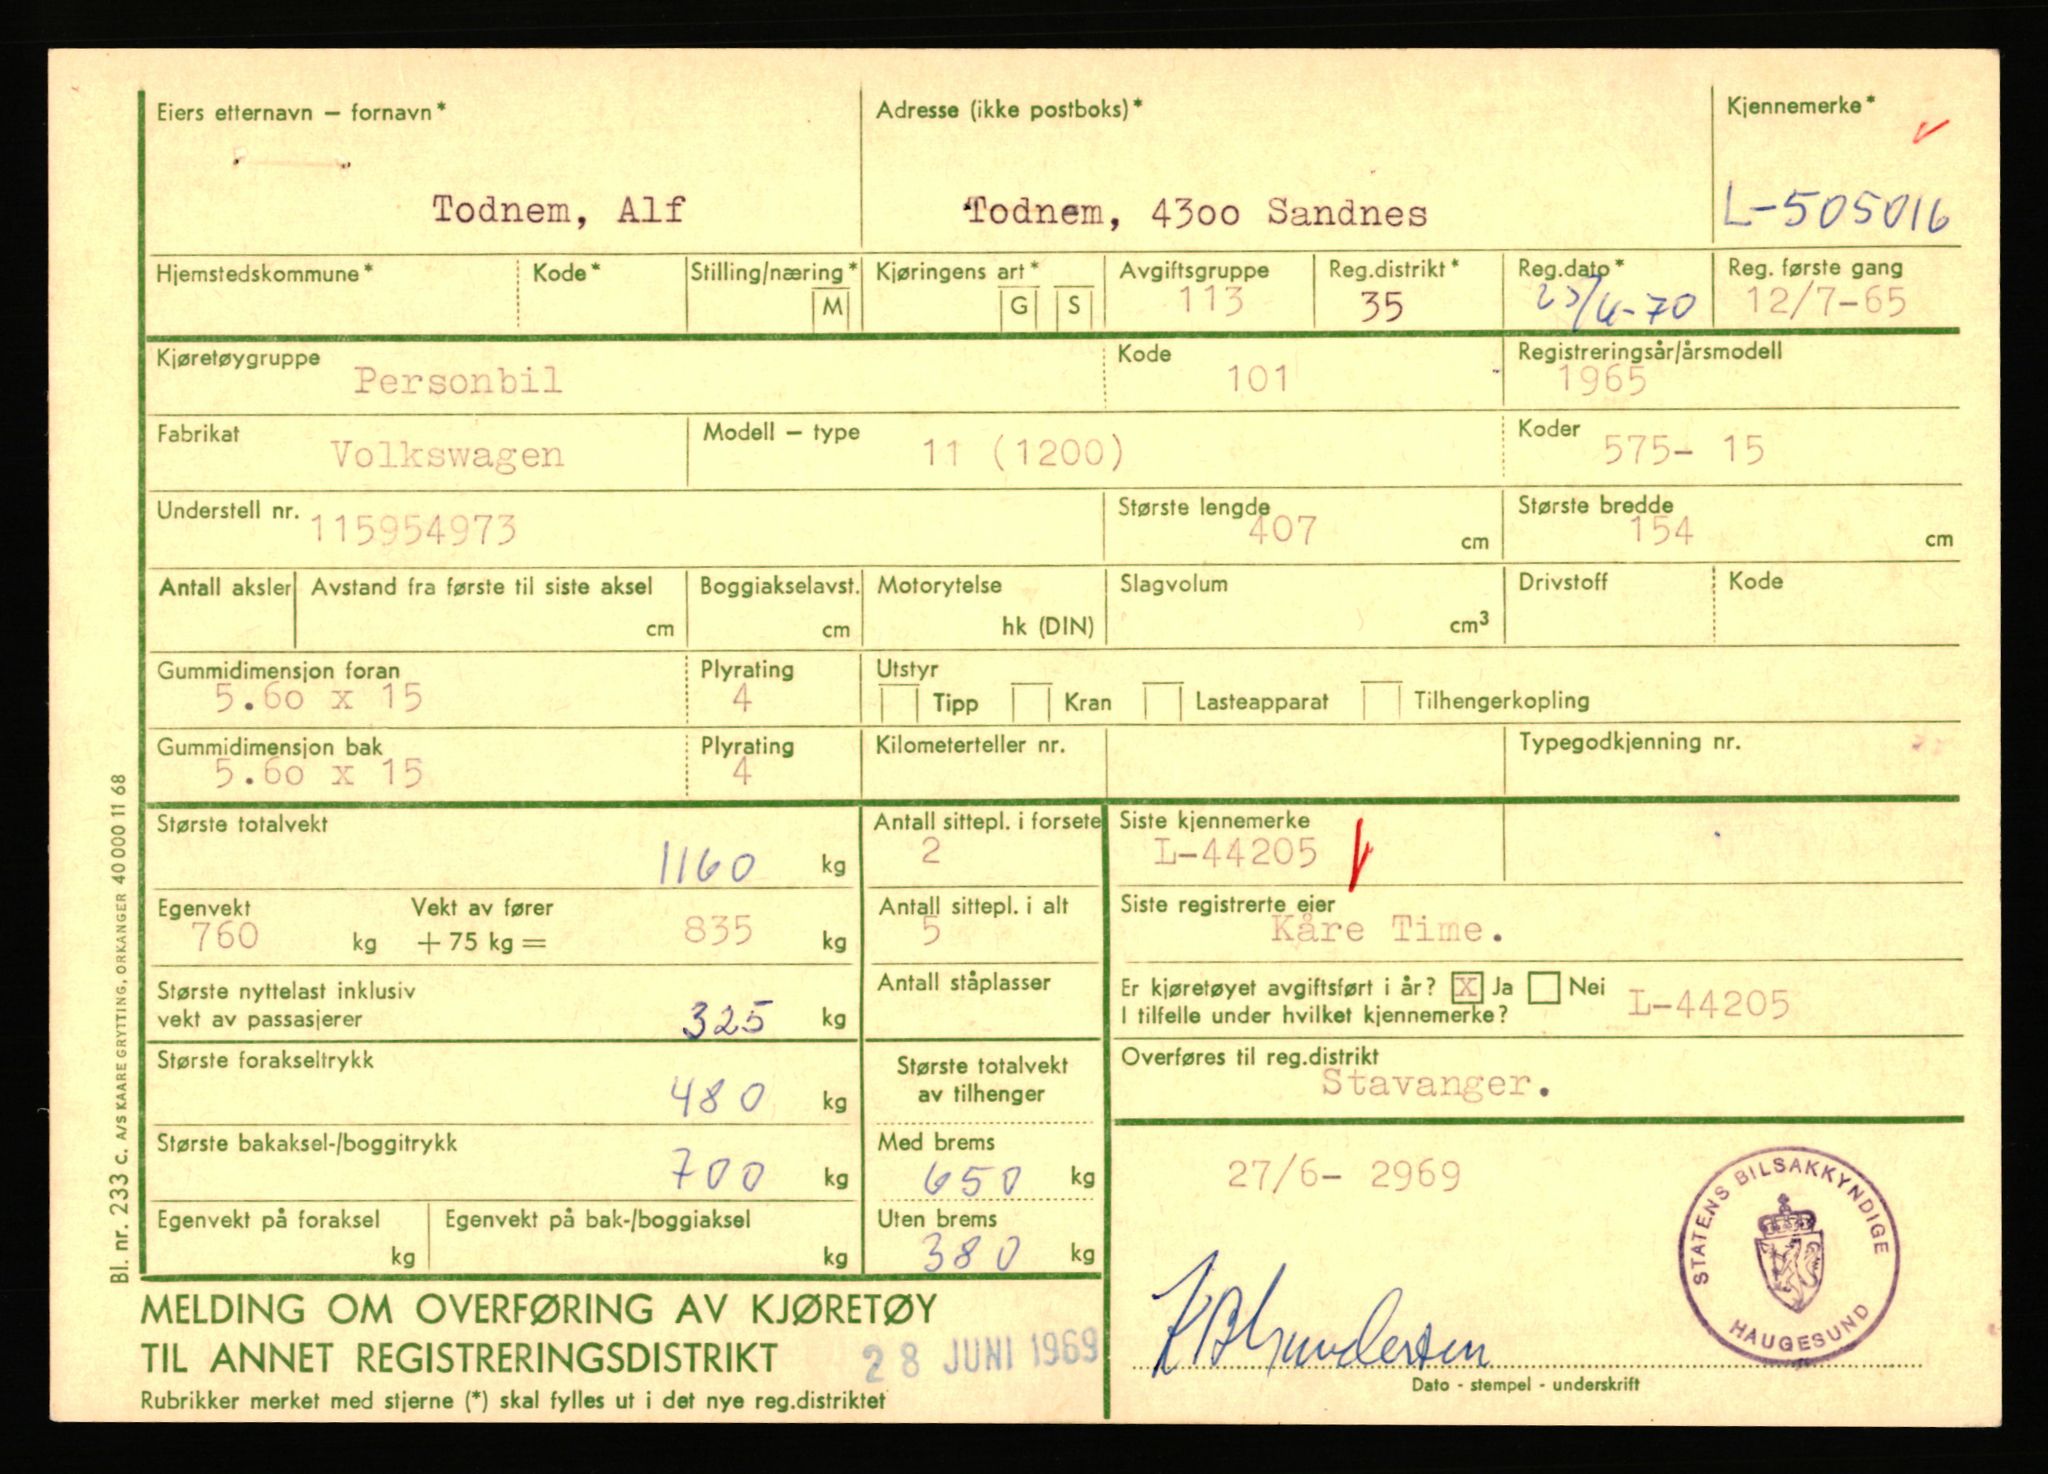 Eiers etternavn – fornavn*
Todnem, Alf
Adresse (ikke postboks)*
Todnem, 4300 Sandnes
Kjennemerke*
L-505016
Hjemstedskommune*
Kode*
Stilling/næring*
M
Kjøringens art*
G S
Avgiftsgruppe
113
Reg.distrikt*
35
Reg.dato*
Reg. første gang
12/7-65
Kjøretøygruppe
Personbil
Kode
101
Registreringsår/årsmodell
1965
Fabrikat
Volkswagen
Modell – type
11 (1200)
Koder
575- 15
Understell nr.
115954973
Største lengde
407
cm
Største bredde
154
cm
Antall aksler
Avstand fra første til siste aksel
cm
Boggiakselavst.
cm
Motorytelse
hk (DIN)
Slagvolum
cm3
Drivstoff
Kode
Gummidimensjon foran
5.60 x 15
Plyrating
4
Utstyr
Tipp Kran Lasteapparat Tilhengerkopling
Gummidimensjon bak
5.60 x 15
Plyrating
4
Kilometerteller nr.
Typegodkjenning nr.
Største totalvekt
1160 kg
Egenvekt
760 kg
Vekt av fører
+ 75 kg = 835 kg
Største nyttelast inklusiv
vekt av passasjerer 325 kg
Største forakseltrykk
480 kg
Største bakaksel-/boggitrykk
700 kg
Egenvekt på foraksel
kg
Egenvekt på bak-/boggiaksel
kg
Antall sittepl. i forsete
2
Antall sittepl. i alt
5
Antall ståplasser
Største totalvekt
av tilhenger
Med brems
650 kg
Uten brems
380 kg
Siste kjennemerke
L-44205
Siste registrerte eier
Kåre Time.
Er kjøretøyet avgiftsført i år? X Ja Nei
I tilfelle under hvilket kjennemerke? L-44205
Overføres til reg.distrikt
Stavanger.
27/6- 2969
STATENS BILSAKKYNDIGE
HAUGESUND
Dato - stempel - underskrift
MELDING OM OVERFØRING AV KJØRETØY
TIL ANNET REGISTRERINGSDISTRIKT
28 JUNI 1969
Rubrikker merket med stjerne (*) skal fylles ut i det nye reg.distriktet
Bl. nr. 233 c. A/S KAARE GRYTTING, ORKANGER 40 000 11 68